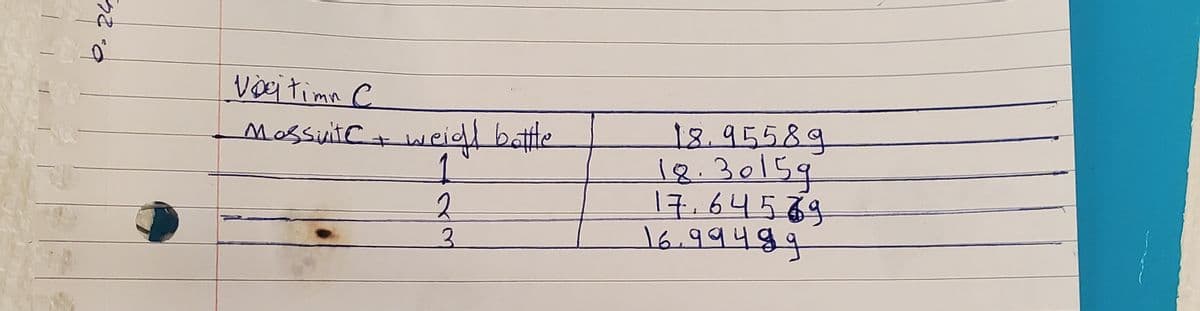 0.24
Vaitimn C
MassvitC + weight bottle 18.9558g
1 18.3015g
2 17.645 g
3 16.9948g